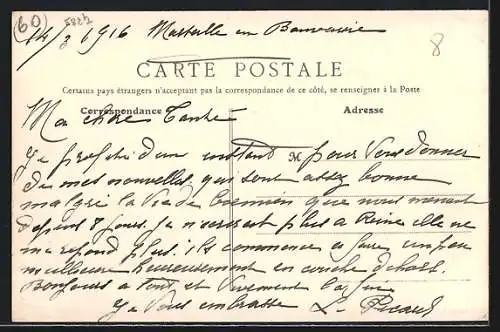 (60)
5822
14/3 1916 Marseille en Beauvaisie
8
CARTE POSTALE
Certains pays étrangers n'acceptant pas la correspondance de ce côté, se renseigner à la Poste
Correspondance
Adresse
Ma chère Tante
Je profite d'un instant pour Vous donner
M
de mes nouvelles, qui sont assez bonne
malgré la Vie de que nous menons
depuis 8 jours. Je n'écrirai plus a Reine elle ne
me repond plus. ils commence a faire un peu
meilleure heureusement on couche dehors.
Bonjours a tout et Vivement la fin
Je Vous embrasse L. Picard